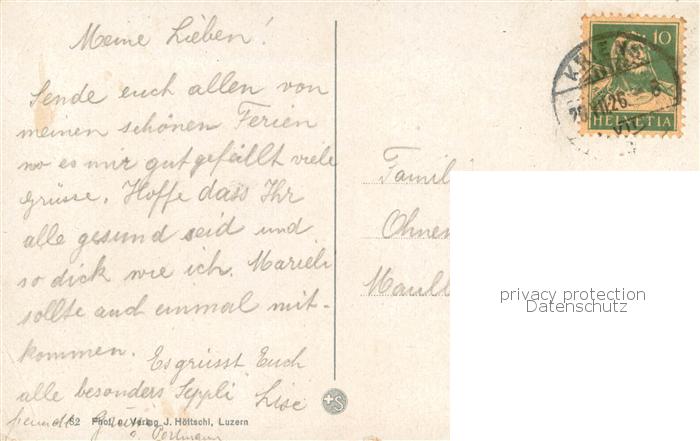 Meine Lieben!
Sende euch allen von
meinen schönen Ferien
wo es mir gut gefällt viele
Grüsse. Hoffe dass Ihr
alle gesund seid und
so dick wie ich. Marieli
sollte auch einmal mit-
kommen.
Es grüsst Euch
alle besonders Seppli Lise
62 Phot. u. Verlag J. Höltschi, Luzern
10
HELVETIA
KRIENS
Famil
Ohnen
Maull
privacy protection
Vorderansicht